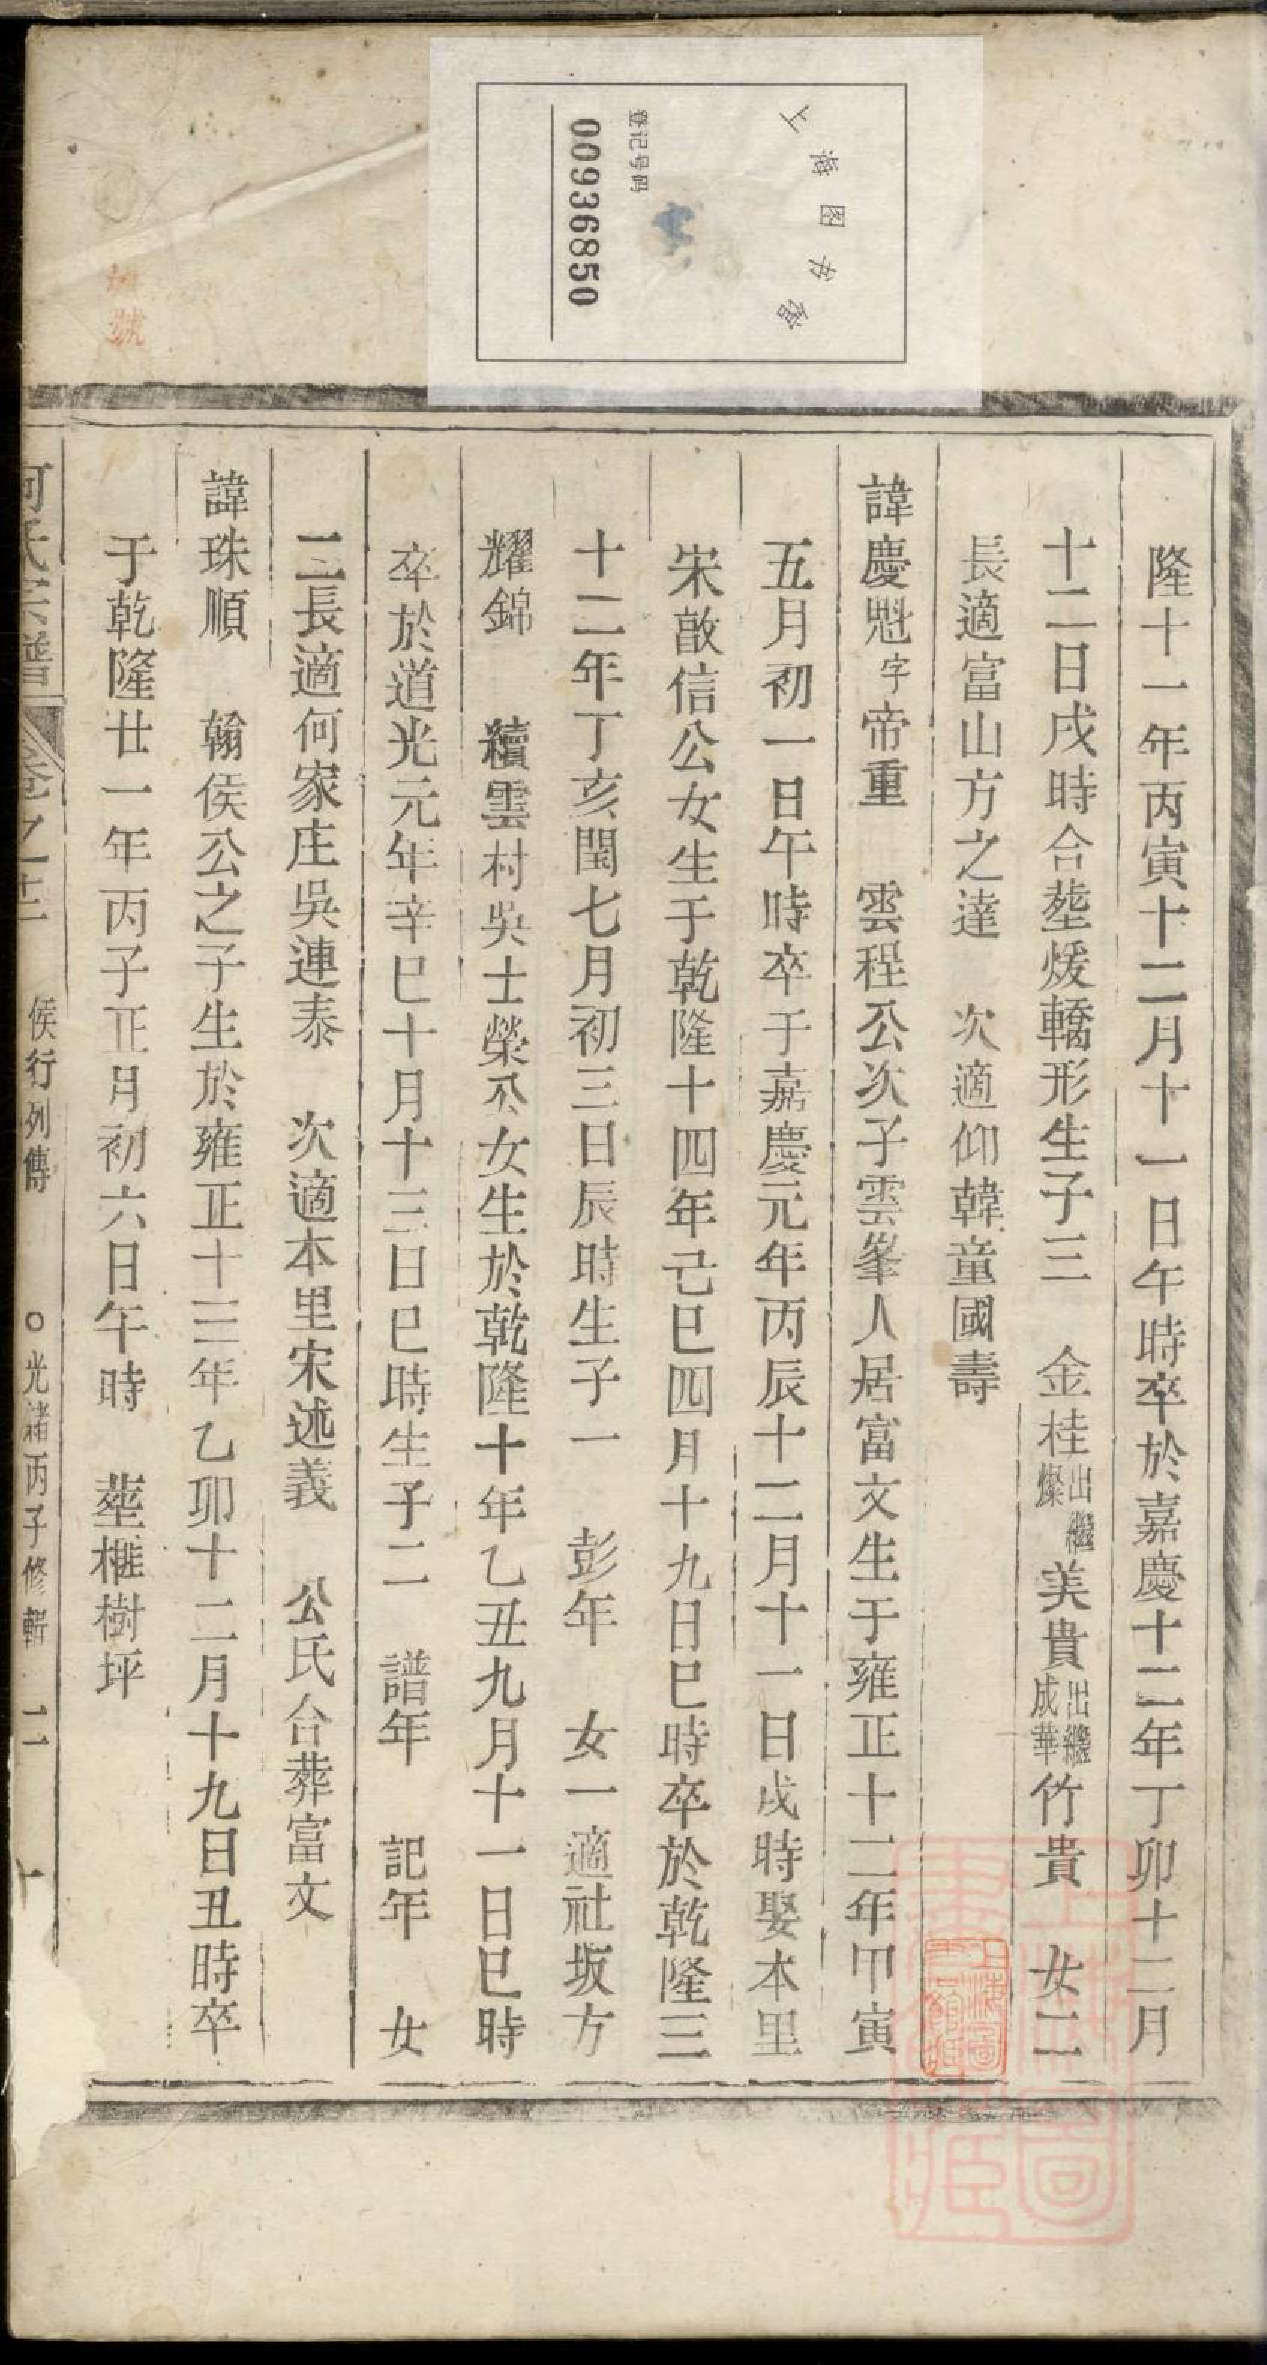 上海图书馆
登记号码
00936850
隆十一年丙寅十二月十一日午時卒於嘉慶十二年丁卯十二月
十二日戌時合塟煖轎形生子三　金桂出繼燦美貴出繼成華竹貴　女二
長適富山方之達　次適仰韓童國壽
諱慶魁字帝重　雲程公次子雲峯人居富文生于雍正十二年甲寅
五月初一日午時卒于嘉慶元年丙辰十二月十一日戌時娶本里
宋敔信公女生于乾隆十四年己巳四月十九日巳時卒於乾隆三
十二年丁亥閏七月初三日辰時生子一　彭年　女一適社坂方
耀錦　續雲村吳士榮公女生於乾隆十年乙丑九月十一日巳時
卒於道光元年辛巳十月十三日巳時生子二　譜年　記年　女
二長適何家庄吳連泰　次適本里宋述義　公氏合葬富文
諱珠順　翰侯公之子生於雍正十三年乙卯十二月十九日丑時卒
于乾隆廿一年丙子正月初六日午時　塟榧樹坪
何氏宗譜　卷之十二　侯行列傳　○光緒丙子修輯　二
號